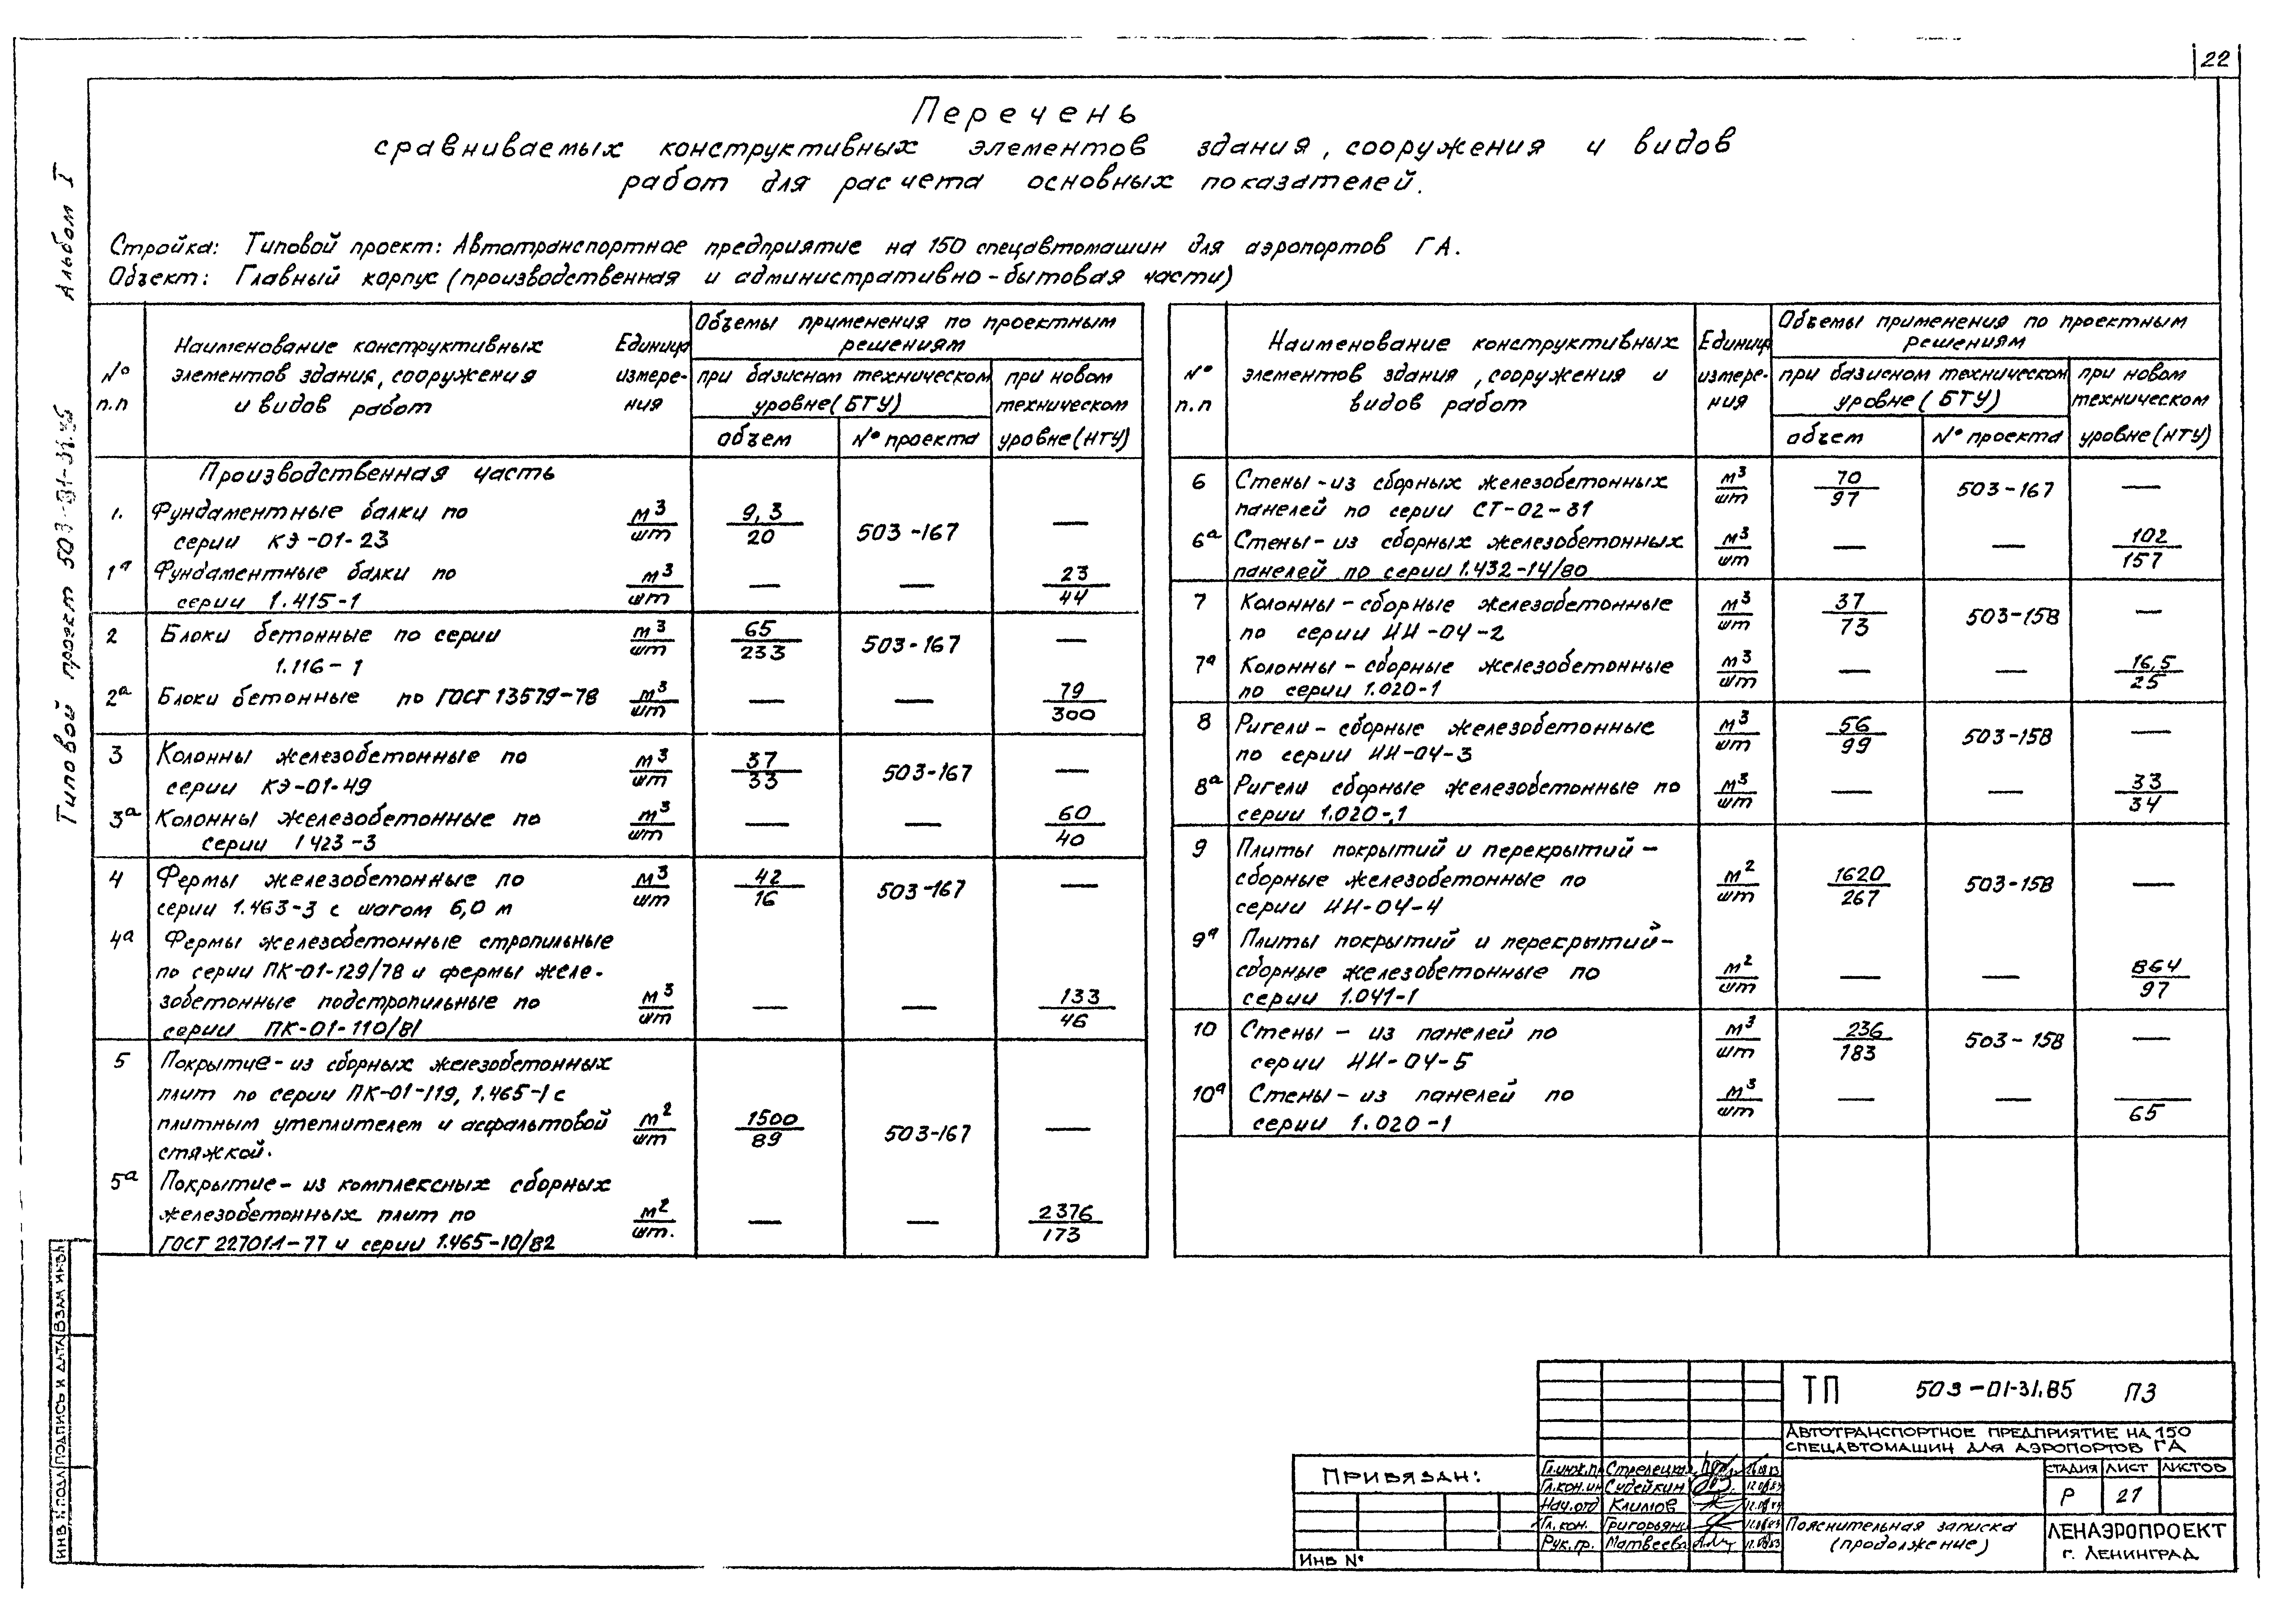 22
Перечень
сравниваемых конструктивных элементов здания, сооружения и видов
работ для расчета основных показателей.
Стройка: Типовой проект: Автотранспортное предприятие на 150 спецавтомашин для аэропортов ГА.
Объект: Главный корпус (производственная и административно-бытовая части)
Альбом I
Типовой проект 503-01-31.85
№ п.п
Наименование конструктивных элементов здания, сооружения и видов работ
Единиц измерения
Объемы применения по проектным решениям
при базисном техническом уровне (БТУ)
при новом техническом уровне (НТУ)
объем
№ проекта
Производственная часть
1. Фундаментные балки по м3 9,3 503-167 —
серии КЭ-01-23 шт 20
1а Фундаментные балки по м3 — — 23
серии 1.415-1 шт 44
2 Блоки бетонные по серии м3 65 503-167 —
1.116-1 шт 233
2а Блоки бетонные по ГОСТ 13579-78 м3 — — 79
шт 300
3 Колонны железобетонные по м3 37 503-167 —
серии КЭ-01-49 шт 33
3а Колонны железобетонные по м3 — — 60
серии 1423-3 шт 40
4 Фермы железобетонные по м3 42 503-167 —
серии 1.463-3 с шагом 6,0 м шт 16
4а Фермы железобетонные стропильные
по серии ПК-01-129/78 и фермы желе-
зобетонные подстропильные по м3 — — 133
серии ПК-01-110/81 шт 46
5 Покрытие - из сборных железобетонных
плит по серии ПК-01-119, 1.465-1 с
плитным утеплителем и асфальтовой м2 1500 503-167 —
стяжкой. шт 89
5а Покрытие - из комплексных сборных
железобетонных плит по м2 — — 2376
ГОСТ 22701.1-77 и серии 1.465-10/82 шт. 173
№ п.п
Наименование конструктивных элементов здания, сооружения и видов работ
Единиц измерения
Объемы применения по проектным решениям
при базисном техническом уровне (БТУ)
при новом техническом уровне (НТУ)
объем
№ проекта
6 Стены - из сборных железобетонных м3 70 503-167 —
панелей по серии СТ-02-31 шт 97
6а Стены - из сборных железобетонных м3 — — 102
панелей по серии 1.432-14/80 шт 157
7 Колонны - сборные железобетонные м3 37 503-158 —
по серии ИИ-04-2 шт 73
7а Колонны - сборные железобетонные м3 — — 16,5
по серии 1.020-1 шт 25
8 Ригели - сборные железобетонные м3 56 503-158 —
по серии ИИ-04-3 шт 99
8а Ригели сборные железобетонные по м3 — — 33
серии 1.020-1 шт 34
9 Плиты покрытий и перекрытий -
сборные железобетонные по м2 1620 503-158 —
серии ИИ-04-4 шт 267
9а Плиты покрытий и перекрытий -
сборные железобетонные по м2 — — 864
серии 1.041-1 шт 97
10 Стены - из панелей по м3 236 503-158 —
серии ИИ-04-5 шт 183
10а Стены - из панелей по м3 — —
серии 1.020-1 шт 65
ИНВ № ПОДЛ ПОДПИСЬ И ДАТА ВЗАМ ИНВ №
ПРИВЯЗАН:
ИНВ №
Гл.инж.пр Стрелецкая
Гл.кон.ин Судейкин
Нач.отд Климов
Гл.кон. Григорьянц
Рук.гр. Матвеева
ТП 503-01-31.85 ПЗ
АВТОТРАНСПОРТНОЕ ПРЕДПРИЯТИЕ НА 150
СПЕЦАВТОМАШИН ДЛЯ АЭРОПОРТОВ ГА
СТАДИЯ ЛИСТ ЛИСТОВ
Р 21
Пояснительная записка
(продолжение)
ЛЕНАЭРОПРОЕКТ
г. ЛЕНИНГРАД